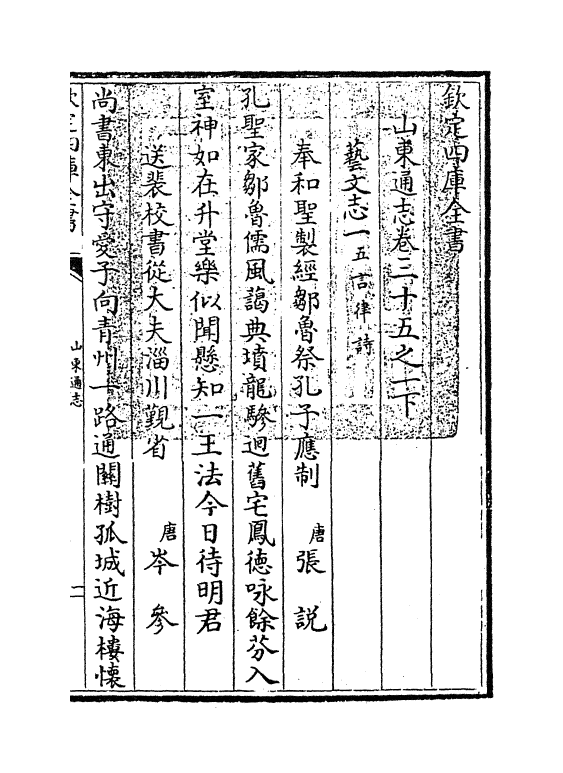 欽定四庫全書
山東通志卷三十五之一下
藝文志一五言律詩
奉和聖製經鄒魯祭孔子應制　唐張說
孔聖家鄒魯儒風藹典墳龍驂迴舊宅鳳德咏餘芬入
室神如在升堂樂似聞懸知一王法今日待明君
送裴校書從大夫淄川覲省　唐岑參
尚書東出守愛子向青州一路通關樹孤城近海樓懷
欽定四庫全書
山東通志
一